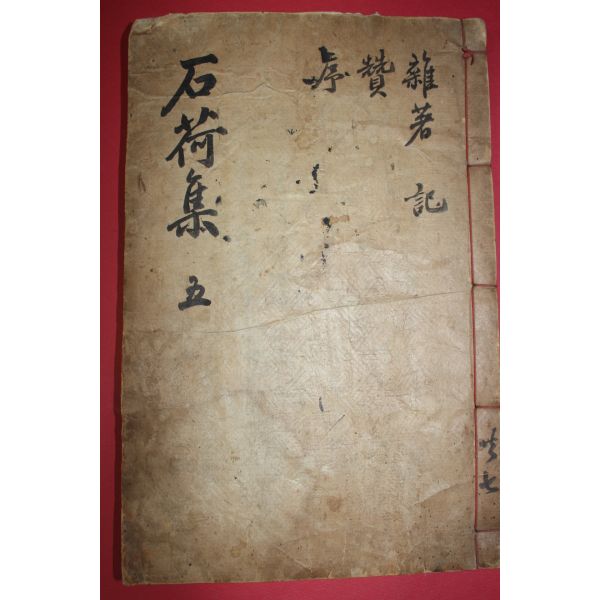 雜著 記
贊
序
石荷集 五
共七